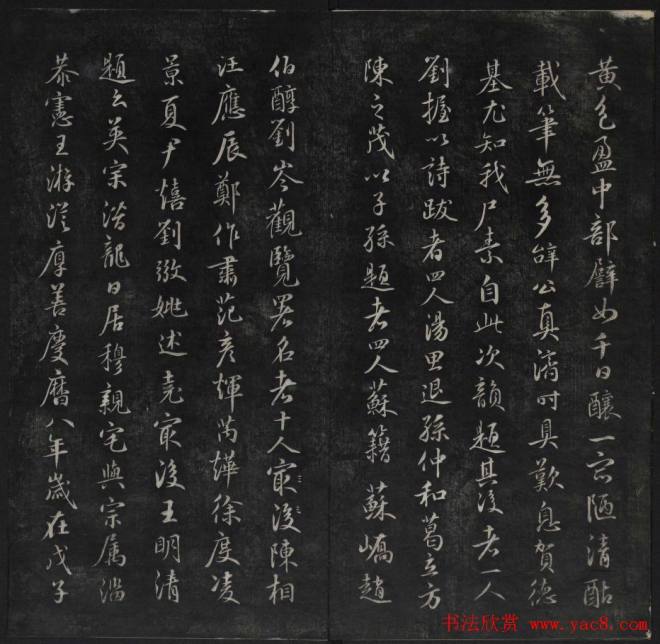 黄色盈中部譬如千日釀一宮陋清酤
載筆無多辭公真滴時具歎息賀德
基尤知我尸素自此次韻題其後者一人
劉握以詩跋者四人湯思退孫仲和葛立方
陳之茂以子孫題者四人蘇籀蘇嶠趙
伯醇劉岑觀覽署名者十人最後陳相
汪應辰鄭作肅范彥輝芮燁徐度凌
景夏尹熺劉徵姚述堯最後王明清
題云英宗潛龍日居穆親宅與宗属濫
恭憲王游從厚善慶曆八年歲在戊子
书法欣赏 www.yac8.com